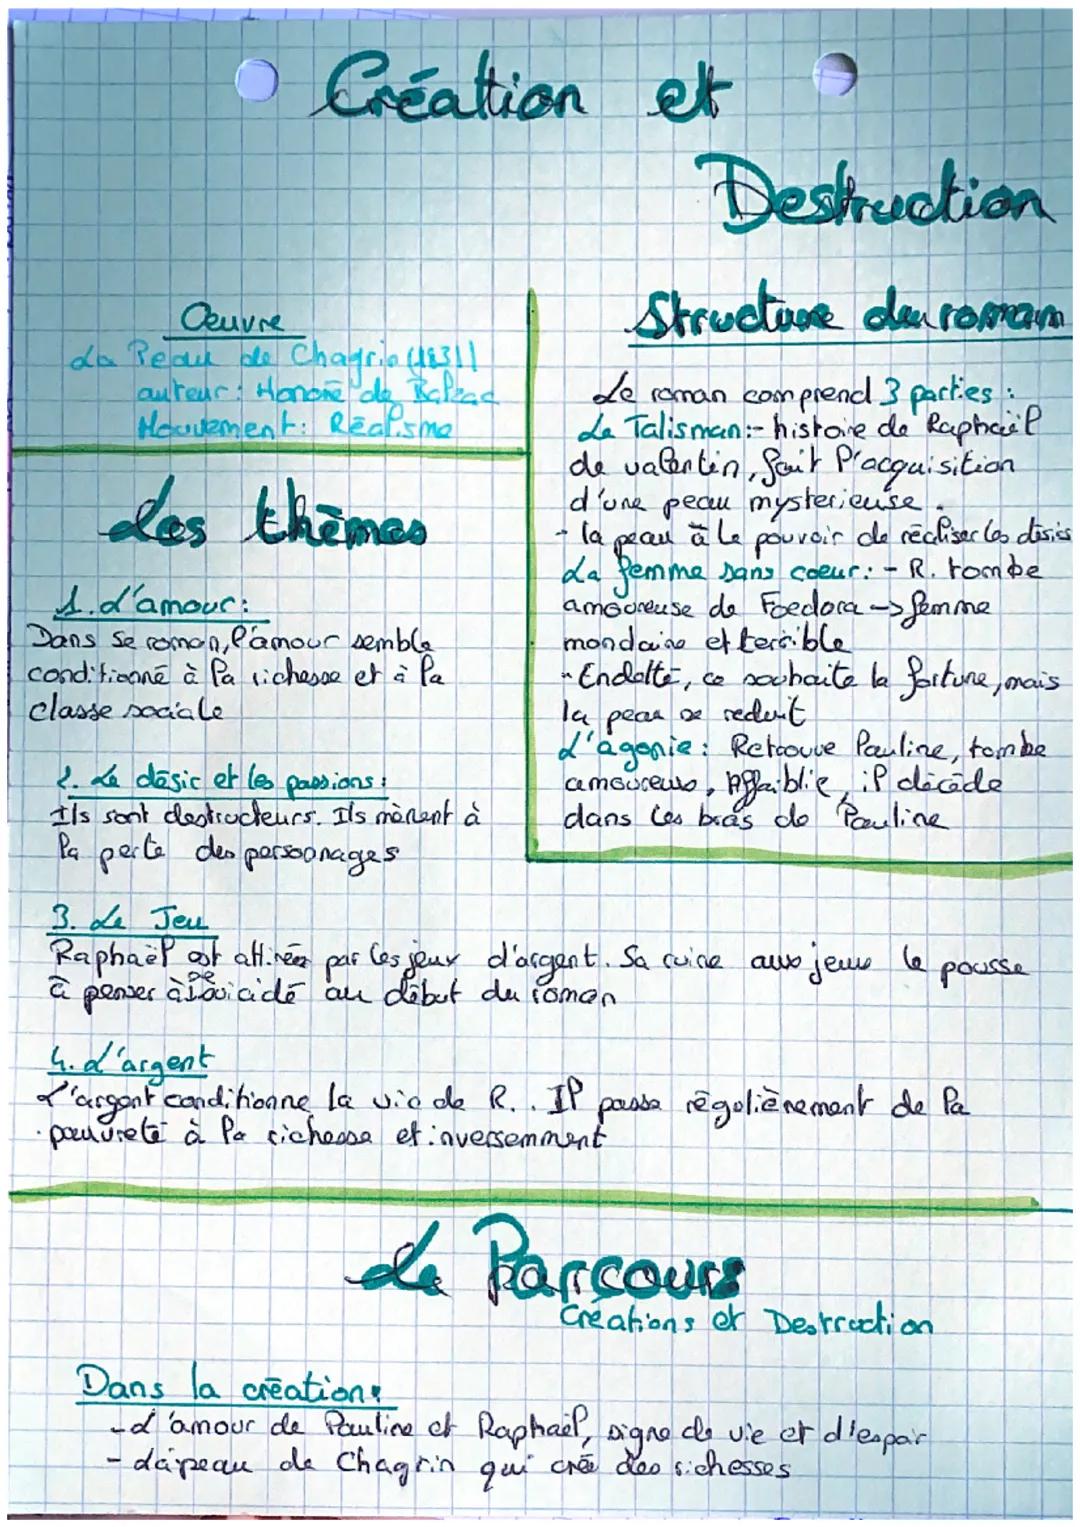 Création et
Destruction
Œuvre
La Peau de Chagrin (1831)
auteur : Honoré de Balzac
Mouvement : Réalisme
Les thèmes
1. L'amour :
Dans se roman, l'amour semble
conditionné à la richesse et à la
classe sociale
2. Le désir et les passions :
Ils sont destructeurs. Ils mènent à
la perte des personnages
Structure du roman
Le roman comprend 3 parties :
Le Talisman :- histoire de Raphaël
de valentin, fait l'acquisition
d'une peau mysterieuse.
- la peau à le pouvoir de réaliser les désirs
La femme sans coeur : - R. tombe
amoureuse de Foedora -> femme
mondaine et terrible
- Endetté, ce souhaite la fortune, mais
la peau se reduit
L'agonie : Retrouve Pauline, tombe
amoureuse, Affaiblie, il décède
dans les bras de Pauline
3. Le Jeu
Raphaël est attirée par les jeux d'argent. Sa ruine aux jeux le pousse
à penser au début du roman
4. L'argent
L'argent conditionne la vie de R.. Il passe régulièrement de la
pauvreté à la richesse et inversemment
Le Parcours
Créations et Destruction
Dans la création :
- L'amour de Pauline et Raphaël, signe de vie et d'espoir
- La peau de Chagrin qui crée des richesses